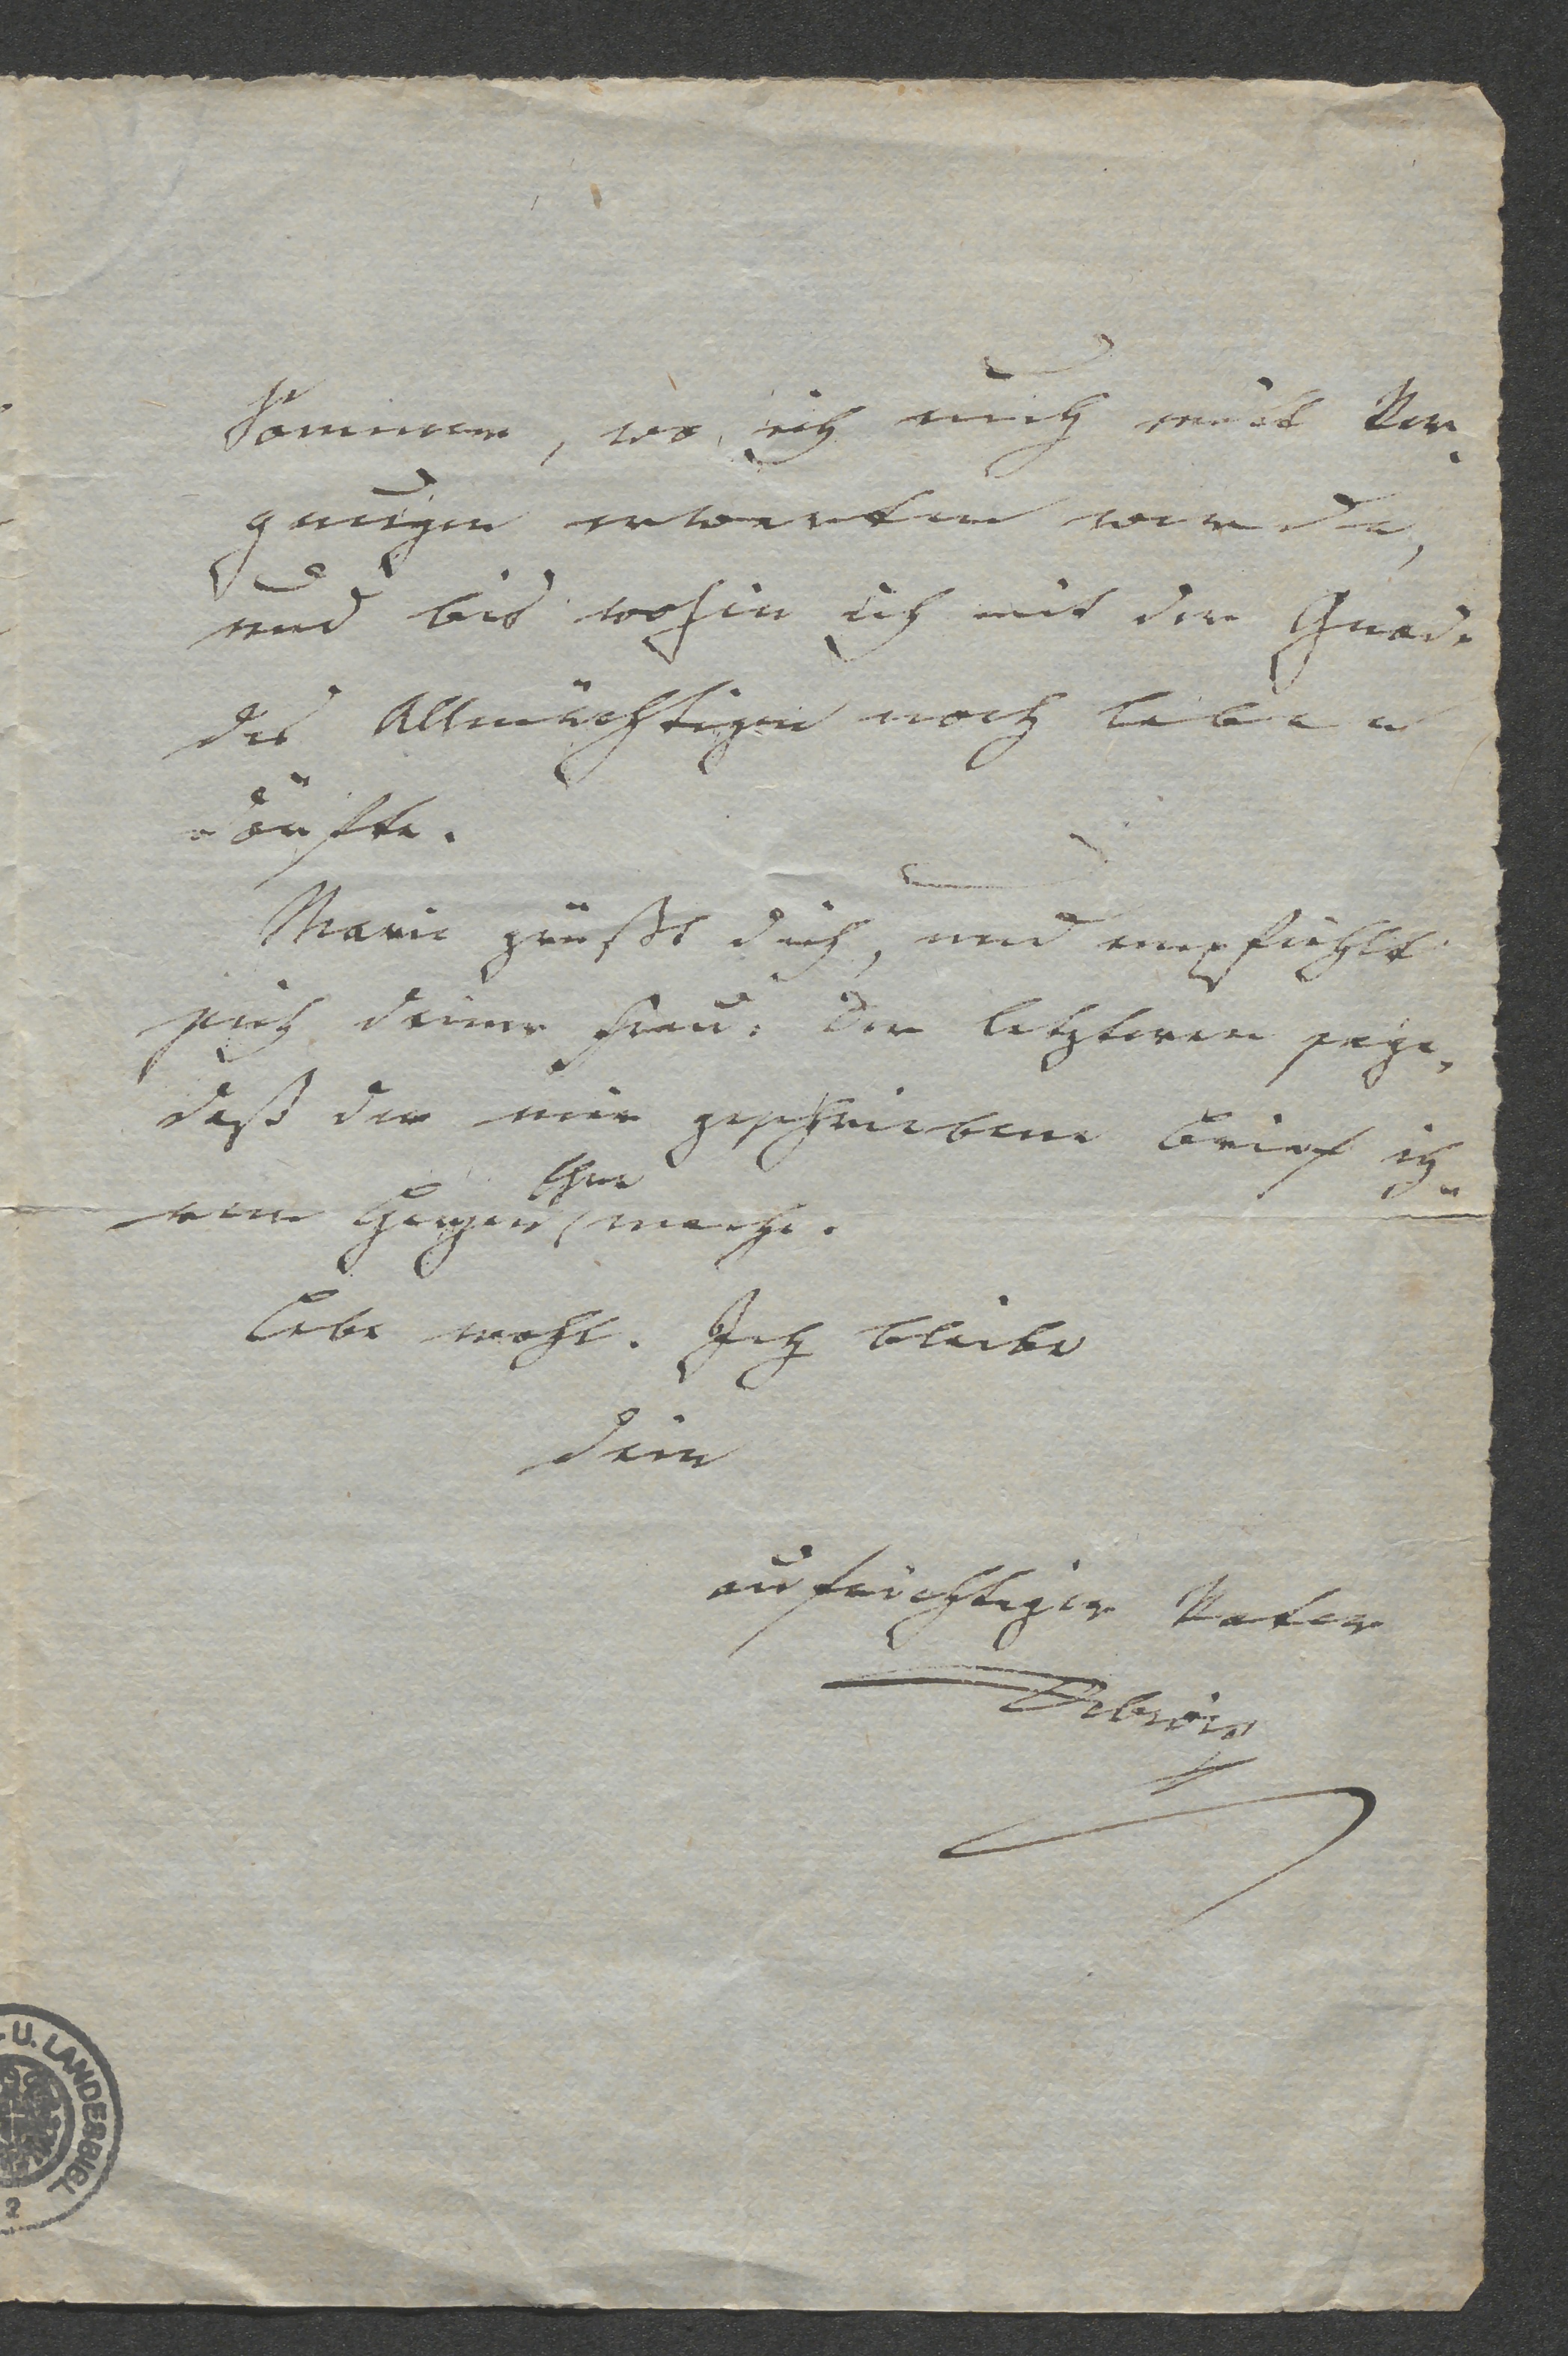 Sommer, wo ich euch mit Ver-
gnügen erwarten werde,
und bis wohin ich mit der Gnade
des Allmächtigen noch leben
dürfte.
Marie grüßt dich, und empfiehlt
sich deiner Frau. Der letzteren sage,
daß der mir geschriebene Brief ih-
rem Herzen Ehre mache.
Lebe wohl. Ich bleibe
dein
aufrichtiger Vater
Debrois
U. LANDESBIBL
2